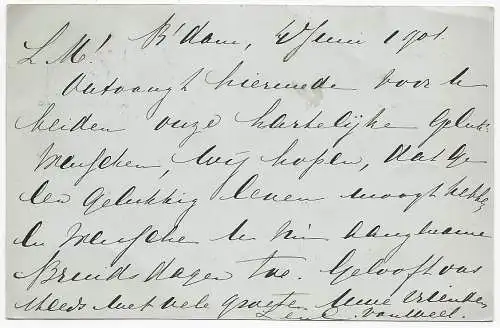 L M! R'dam, Juni 1901.
Ontvangt hiermede voor U
beiden onze hartelijke geluk-
wenschen, wij hopen, dat ge
een gelukkig leven moogt hebben
En wenschen U een aangename
Bruidsdagen toe. Gelooft ons
steeds met vele groeten Uwe vrienden